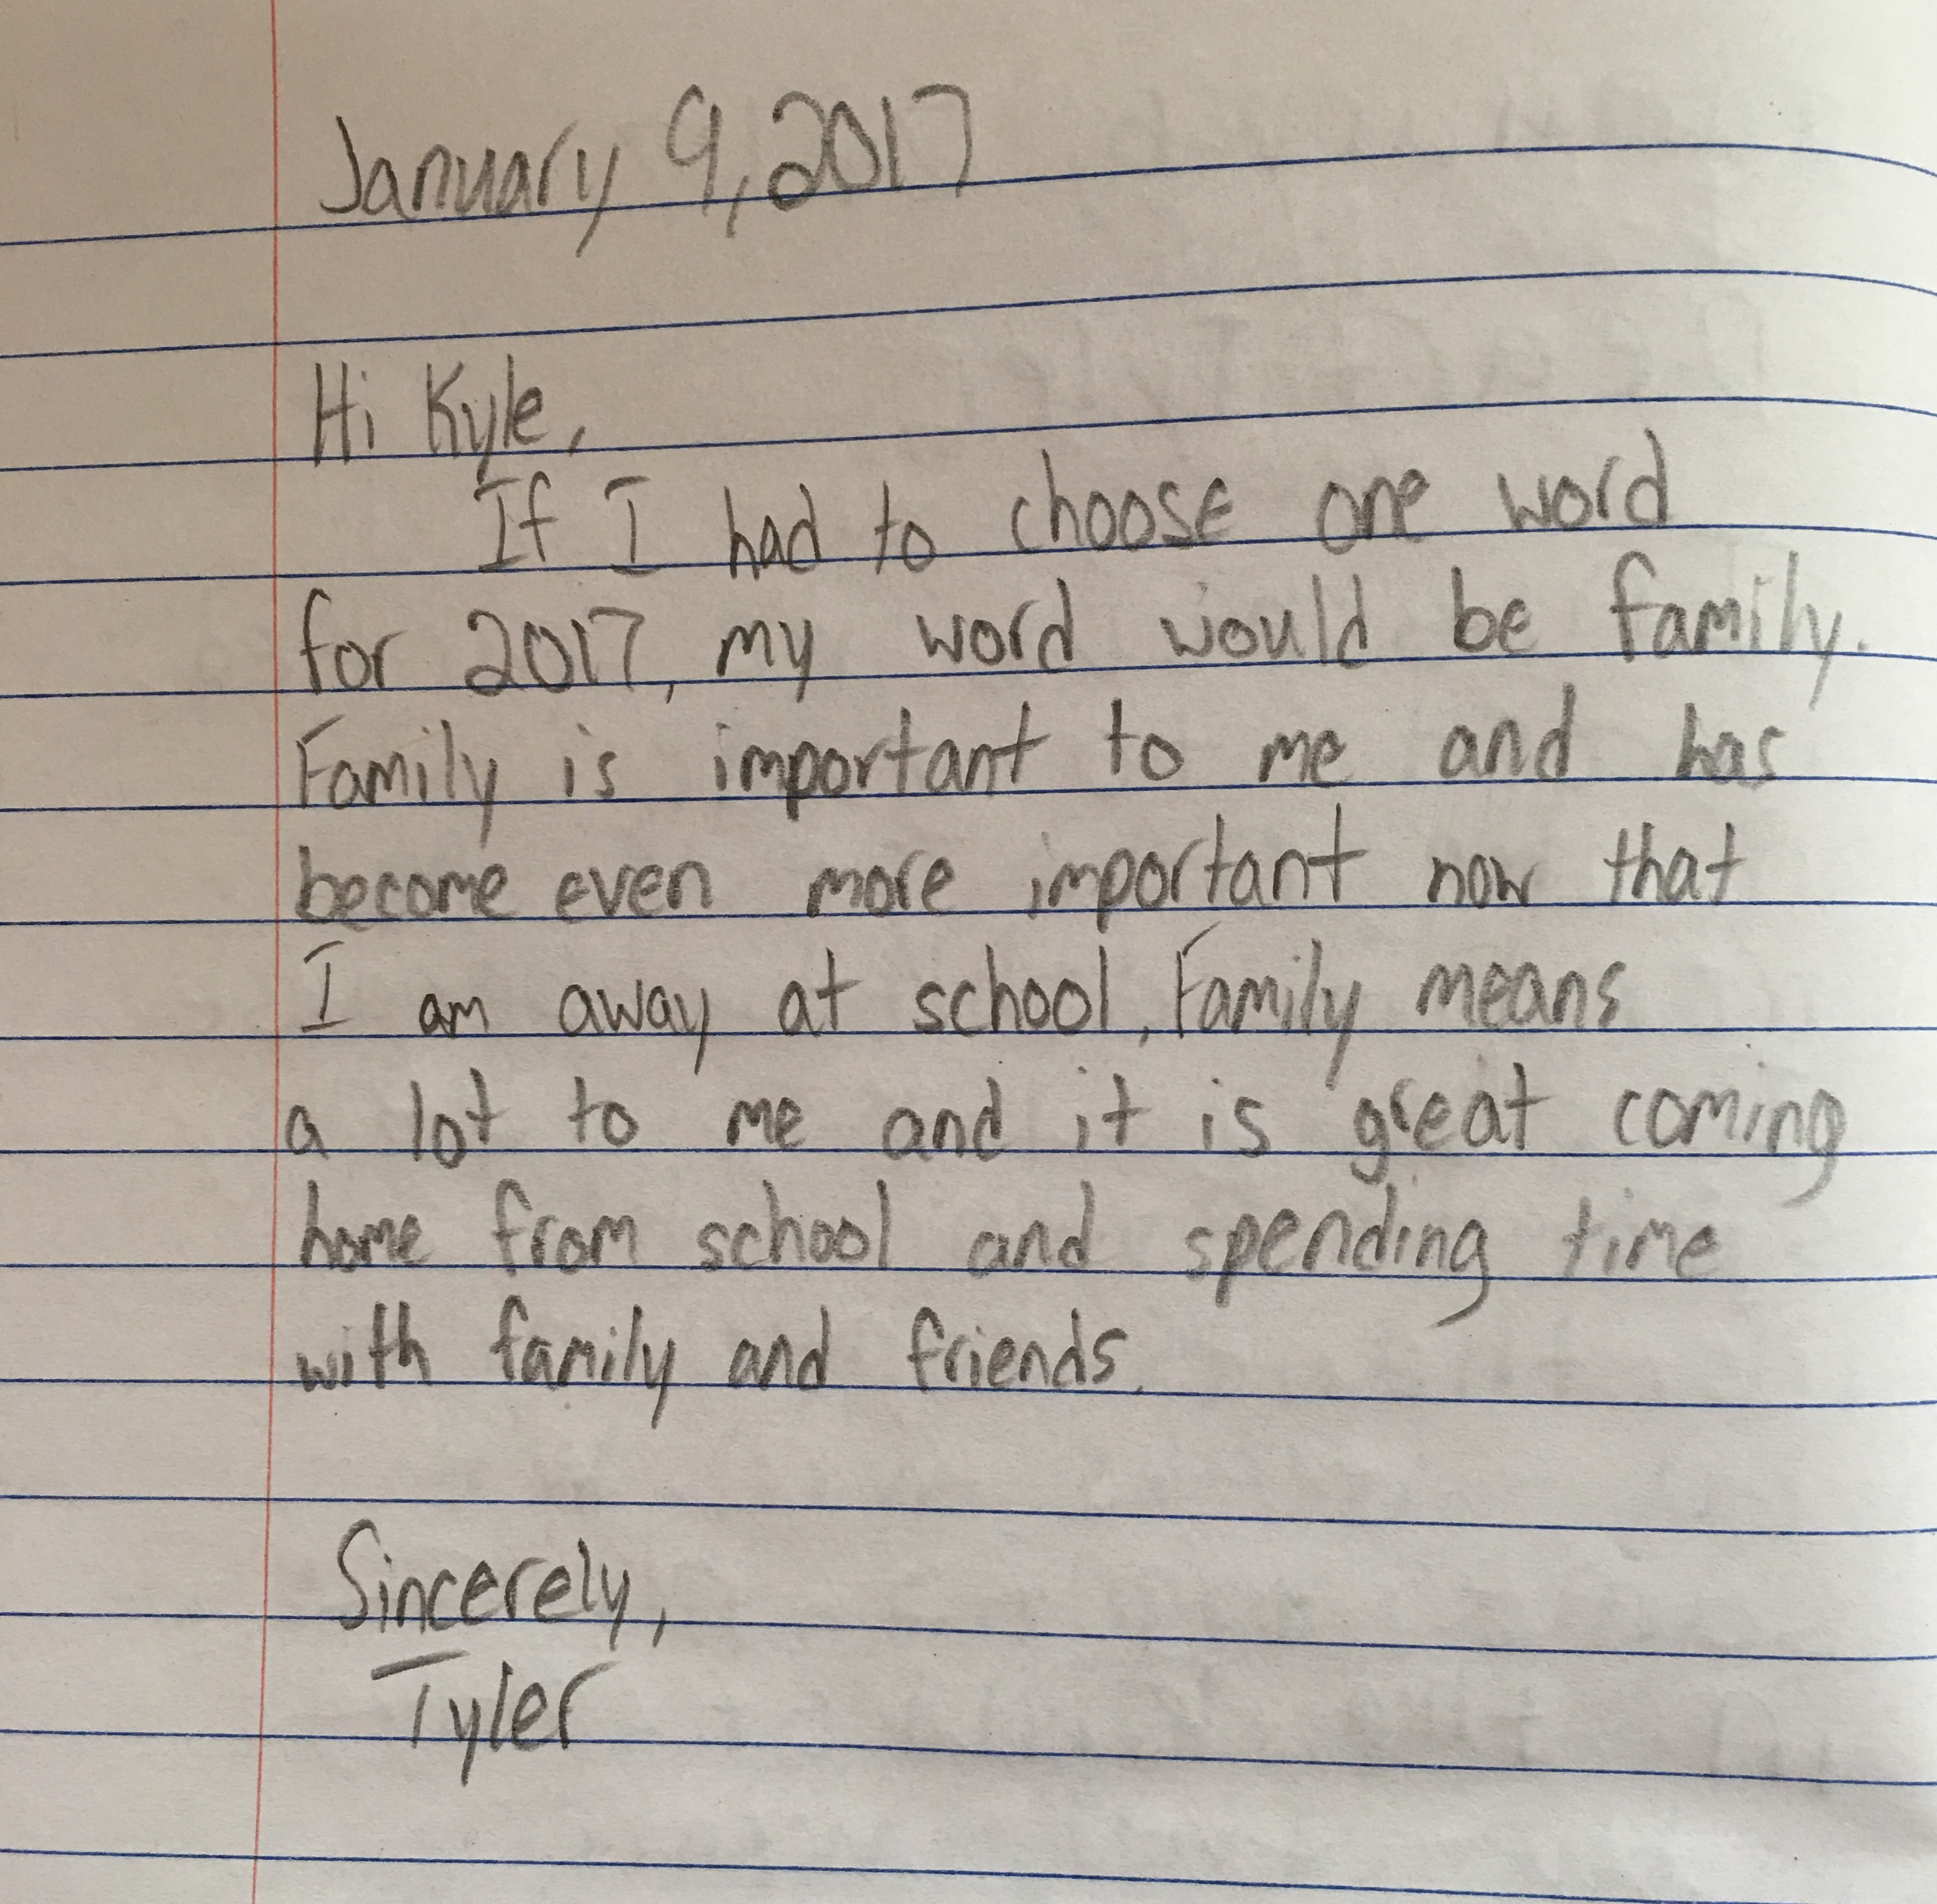 January 9, 2017
Hi Kyle,
If I had to choose one word
for 2017, my word would be family.
Family is important to me and has
become even more important now that
I am away at school, Family means
a lot to me and it is great coming
home from school and spending time
with family and friends.
Sincerely,
Tyler